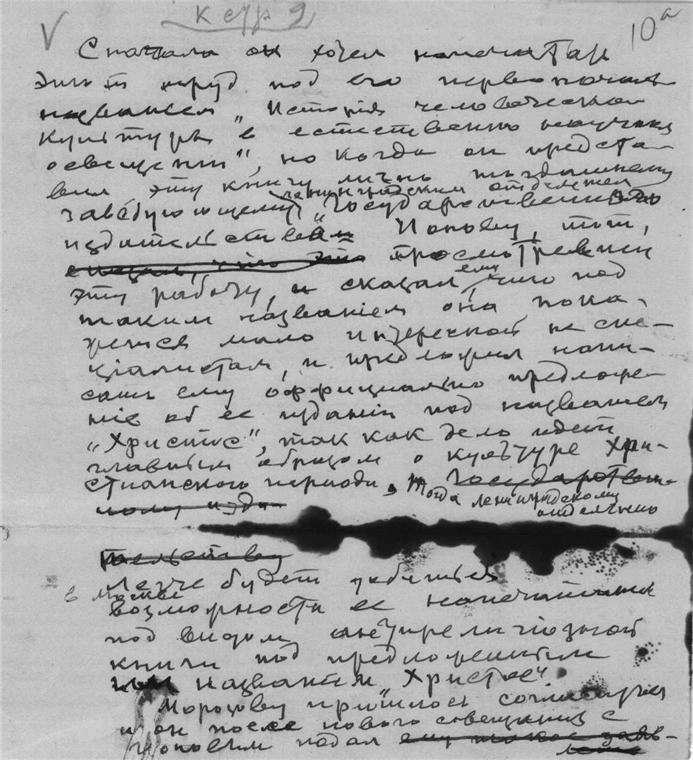 к стр 2
10а
Сначала он хотел напечатать
этот труд под его первоначальн
названием „История человеческой
культуры в естественно научном
освещении", но когда он предста-
вил эту книгу лично тогдашнему
ленинградским отделением
заведующему Государственного
издательства Ионову, тот,
просмотревши
эту работу, и сказал ему что под
таким названием она пока-
жется мало интересной не спе-
циалистам, и предложил напи-
сать ему оффициально предложе-
ние об ее издании под названием
„Христос", так как дело идет
главным образом о культуре хри-
стианского периода, Государствен-
ному изда
Тогда ленинградскому
отделению
тельству
легче будет добиться
в Москве
возможности ее напечатания
под видом антирелигиозной
книги под предложенным
им названием Христос".
Морозову пришлось согласиться
и он после нового совещания с
Ионовым подал ему такое заяв-
ление